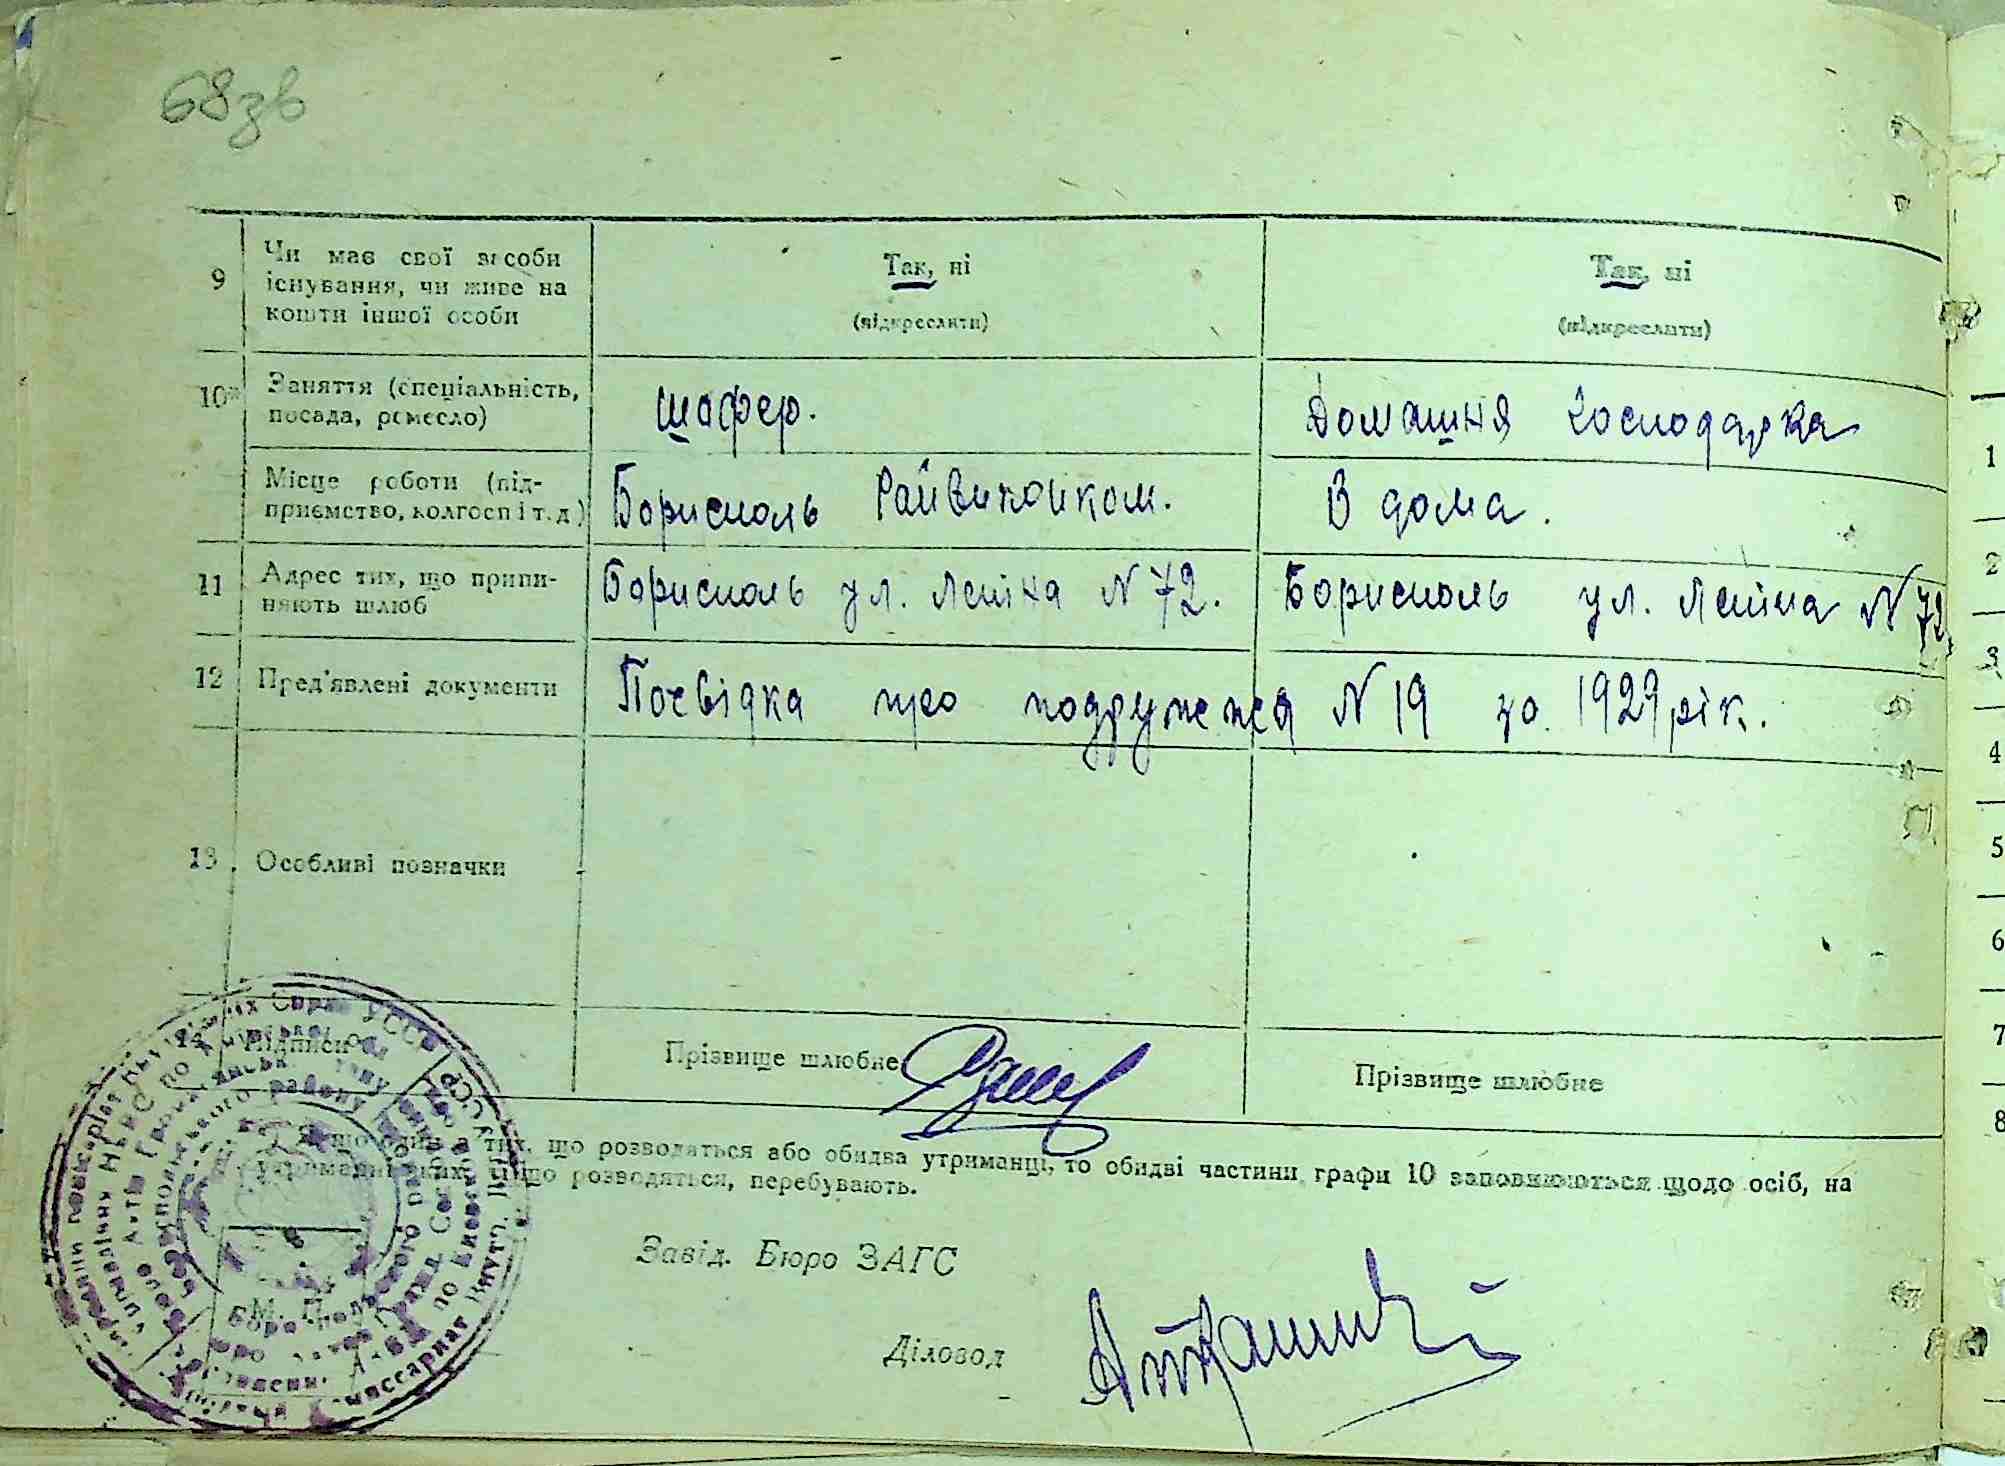 68зв
9 Чи має свої засоби існування, чи живе на кошти іншої особи Так, ні (підкреслити) Так, ні (підкреслити)
10* Заняття (спеціальність, посада, ремесло) шофер. Домашня господарка
Місце роботи (підприємство, колгосп і т. д.) Бориспіль Райвиконком. В дома.
11 Адрес тих, що припиняють шлюб Бориспіль ул. Леніна N 72. Бориспіль ул. Леніна N 72.
12 Пред'явлені документи Посвідка про подружжя N 19 за 1929 рік.
13. Особливі позначки
14 Підписи Прізвище шлюбне Прізвище шлюбне
що розводяться або обидва утриманці, то обидві частини графи 10 заповнюються щодо осіб, на
утриманні яких, що розводяться, перебувають.
Завід. Бюро ЗАГС
М. П.
Діловод
1
2
3
4
5
6
7
8